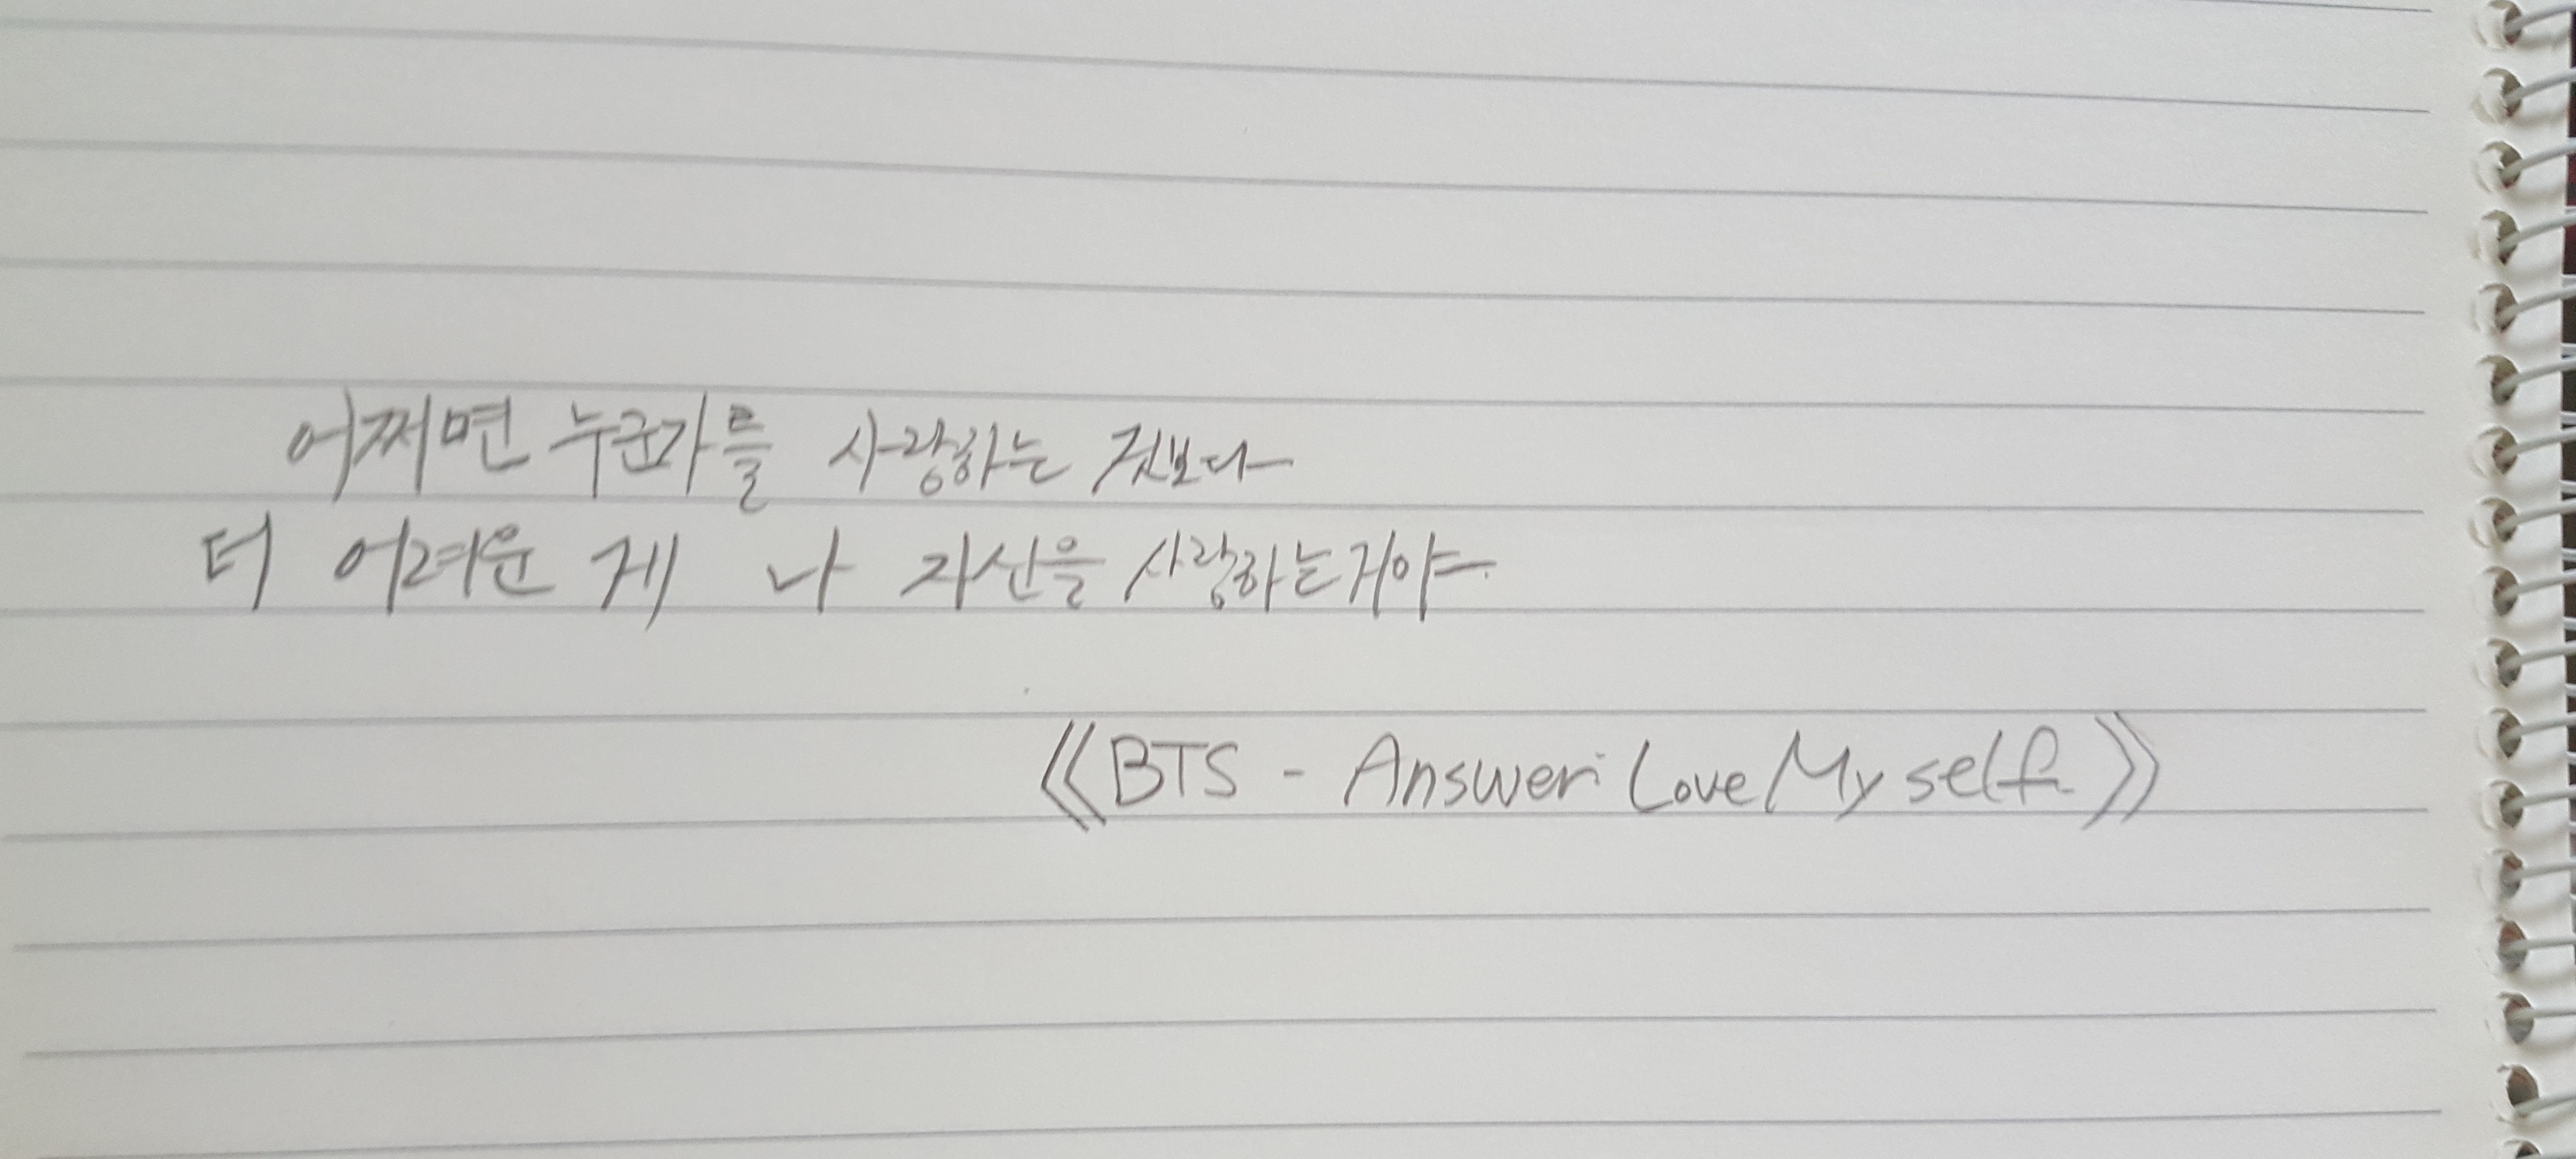 어쩌면 누군가를 사랑하는 것보다
더 어려운 게 나 자신을 사랑하는거야.
《BTS - Answer: Love Myself.》